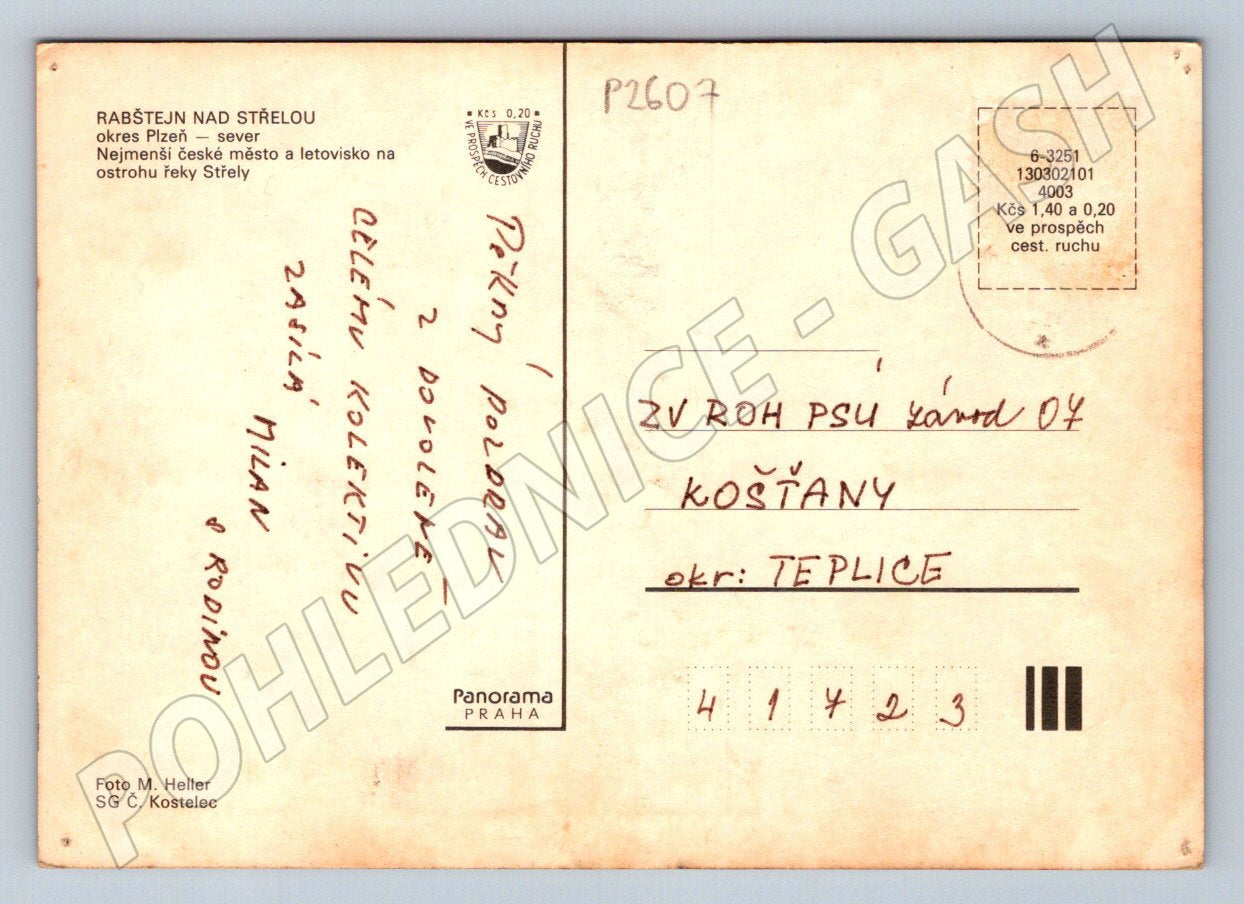 RABŠTEJN NAD STŘELOU
okres Plzeň — sever
Nejmenší české město a letovisko na
ostrohu řeky Střely
Kčs 0,20
VE PROSPĚCH CESTOVNÍHO RUCHU
Pěkný pozdrav
z dovolené –
CELÉMU KOLEKTIVU
ZASÍLÁ
MILAN
s RODINOU
Panorama
PRAHA
Foto M. Heller
SG Č. Kostelec
P2607
6-3251
130302101
4003
Kčs 1,40 a 0,20
ve prospěch
cest. ruchu
ZV ROH PSU závod 07
KOŠŤANY
okr: TEPLICE
41723
POHLEDNICE - GASH